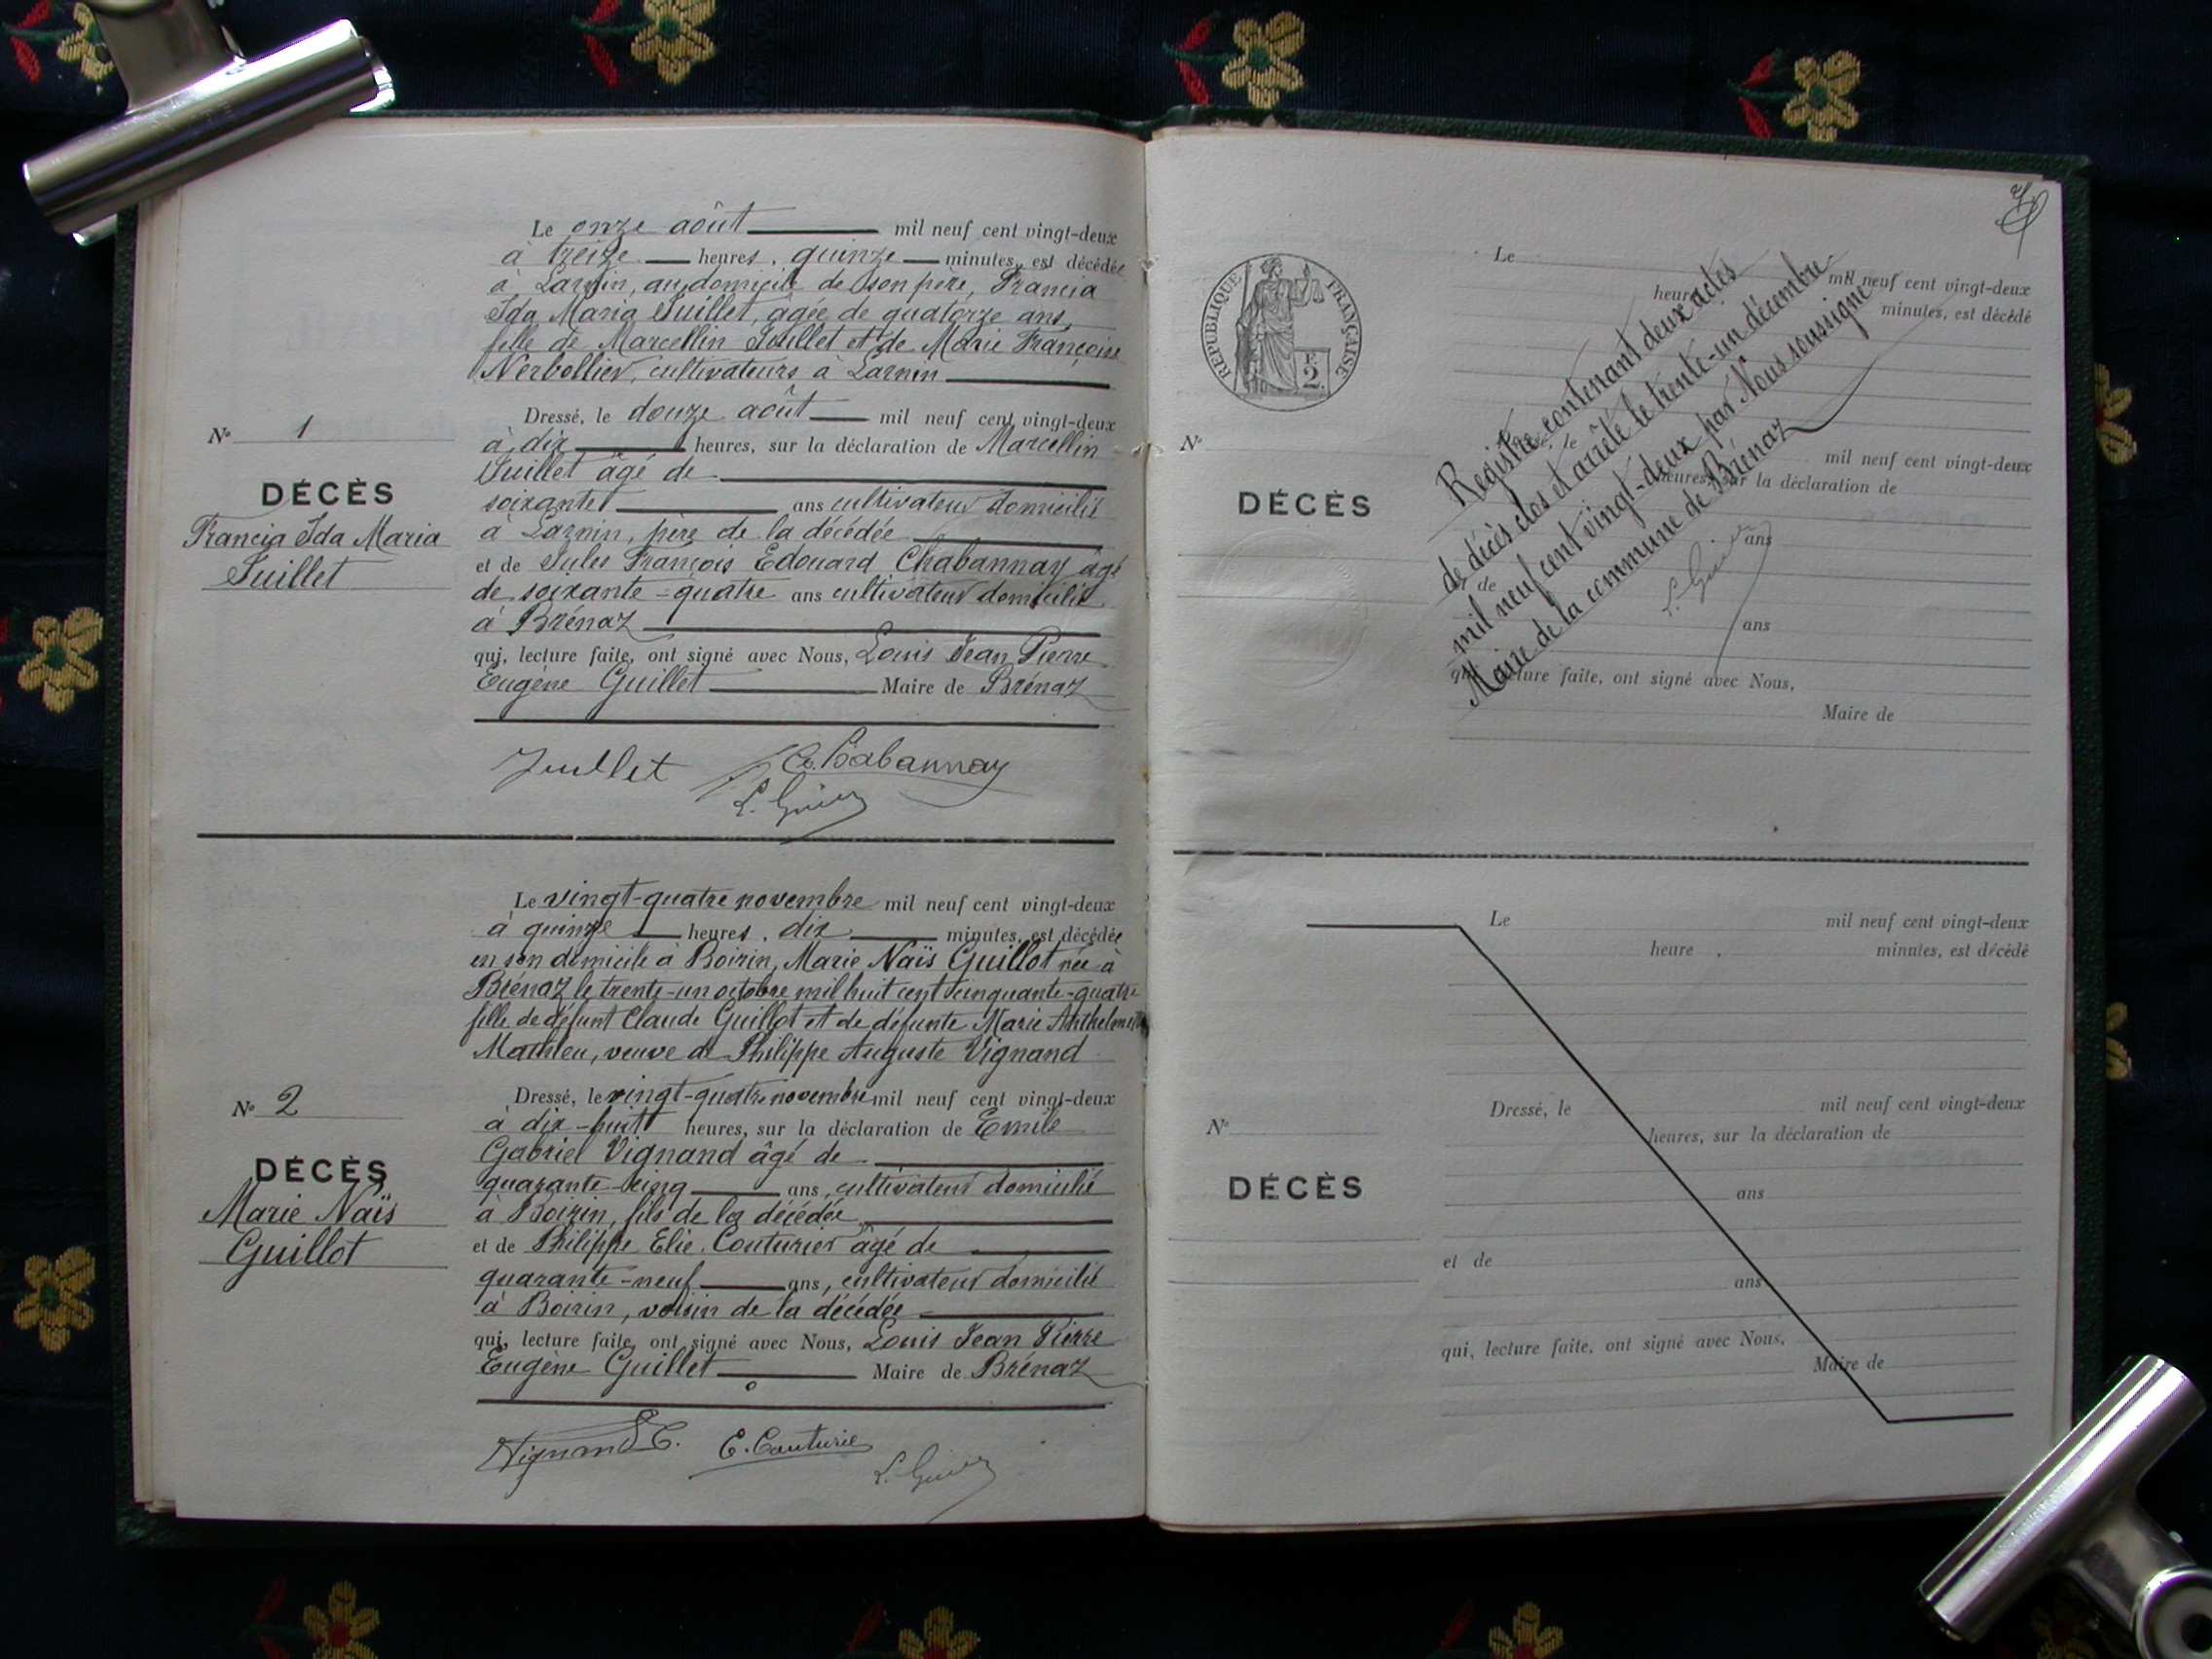 Le onze août mil neuf cent vingt-deux
à treize heures, quinze minutes, est décédée
à Larnin, au domicile de son père, Francia
Ida Maria Juillet, âgée de quatorze ans,
fille de Marcellin Juillet et de Marie Françoise
cultivateurs à Larnin
Dressé, le douze août mil neuf cent vingt-deux
à dix heures, sur la déclaration de Marcellin
Juillet âgé de
soixante ans cultivateur domicilié
à Larnin, père de la décédée
et de Jules François Edouard Chabannay âgé
de soixante-quatre ans cultivateur domicilié
à Brénaz
qui, lecture faite, ont signé avec Nous, Louis Jean Pierre
Eugène Guillet Maire de Brénaz
Juillet Chabannay
N° 1
DÉCÈS
Francia Ida Maria
Juillet
Le vingt-quatre novembre mil neuf cent vingt-deux
à quinze heures, dix minutes, est décédée
en son domicile à Boirin, Marie Naïs Guillot née à
Brénaz le trente-un octobre mil huit cent cinquante-quatre
fille de défunt Claude Guillot et de défunte Marie Anthelmette
Mathieu, veuve de Philippe Auguste Vignand
Dressé, le vingt-quatre novembre mil neuf cent vingt-deux
à dix-huit heures, sur la déclaration de Emile
Gabriel Vignand âgé de
quarante-cinq ans, cultivateur domicilié
à Boirin, fils de la décédée
et de Philippe Elie Couturier âgé de
quarante-neuf ans, cultivateur domicilié
à Boirin, voisin de la décédée
qui, lecture faite, ont signé avec Nous, Louis Jean Pierre
Eugène Guillet Maire de Brénaz
Vignand E. E. Couturie
N° 2
DÉCÈS
Marie Naïs
Guillot
REPUBLIQUE FRANÇAISE
F.
2.
Le mil neuf cent vingt-deux
heure minutes, est décédé
Registre contenant deux actes
de décès clos et arrêté le trente-un décembre
mil neuf cent vingt-deux par Nous soussigné
Maire de la commune de Brénaz
N°
DÉCÈS
mil neuf cent vingt-deux
heures, sur la déclaration de
ans
et de
ans
qui, lecture faite, ont signé avec Nous,
Maire de
Le mil neuf cent vingt-deux
heure , minutes, est décédé
N°
DÉCÈS
Dressé, le mil neuf cent vingt-deux
heures, sur la déclaration de
ans
et de
ans
qui, lecture faite, ont signé avec Nous,
Maire de